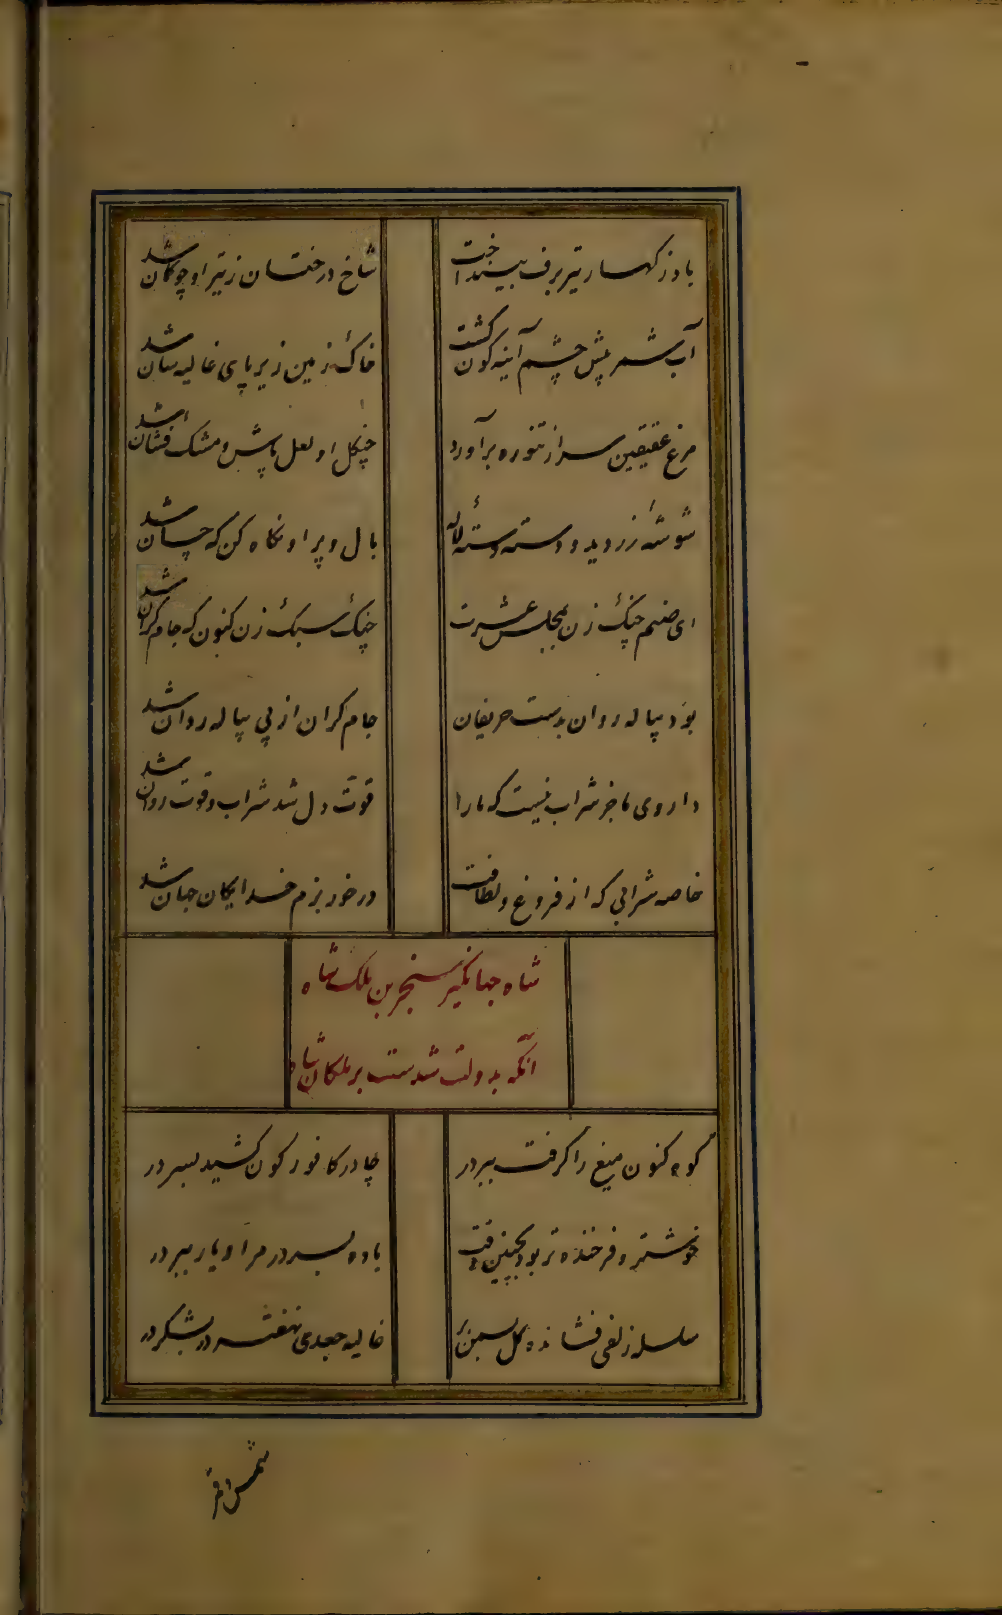 باد ز کهسار تیر برف بینداخت شاخ درختان ز تیر او چو کمان شد
آب شمر پیش چشم آینه کون گشت خاک زمین زیر پای غالیه سان شد
مرغ عقیقین سر از تنوره برآورد چنکل او لعل پاش و مشک فشان شد
شوشهٔ زر دید و دسته دستهٔ لاله بال و پر او نکاه کن که چسان شد
ای صنم چنک زن بمجلس عشرت چنک سبک زن کنون که جام کران شد
بود پیاله روان بدست حریفان جام کران از پی پیاله روان شد
داروی ما جز شراب نیست که ما را قوت دل شد شراب و قوت روان شد
خاصه شرابی که از فروغ و لطافت در خور بزم خدایکان جهان شد
شاه جهانکیر سنجر بن ملک شاه
آنکه بدولت شدست بر ملکان شاه
کوه کنون میغ را کرفت ببر در چادر کافور کون کشید بسر در
خوشتر و فرخنده تر بود بچنین وقت باده بسر در مرا و یار ببر در
سلسله زلفی فشانده بر کل نسرین غالیه جعدی نهفته در بشکر در
شمس و قمر